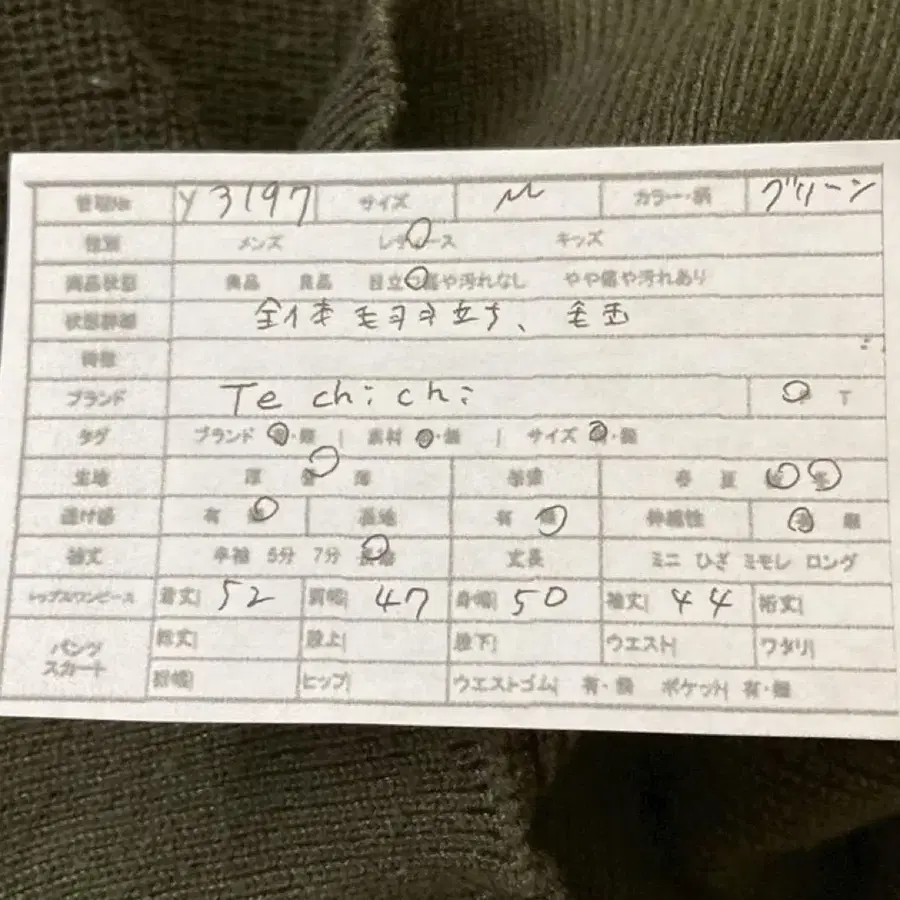 管理No Y3197 サイズ M カラー・柄 グリーン
種別 メンズ レディース キッズ
商品状態 美品 良品 目立つ傷や汚れなし やや傷や汚れあり
状態詳細 全体毛羽立ち、毛玉
特徴
ブランド Te chi chi T
タグ ブランド 有・無 | 素材 有・無 | サイズ 有・無
生地 厚 普 薄 季節 春 夏 秋 冬
透け感 有 無 裏地 有 無 伸縮性 有 無
袖丈 半袖 5分 7分 長袖 丈長 ミニ ひざ ミモレ ロング
トップスワンピース 着丈| 52 肩幅| 47 身幅| 50 袖丈| 44 裄丈|
パンツ スカート 総丈| 股上| 股下| ウエスト| ワタリ|
裾幅| ヒップ| ウエストゴム| 有・無 ポケット| 有・無